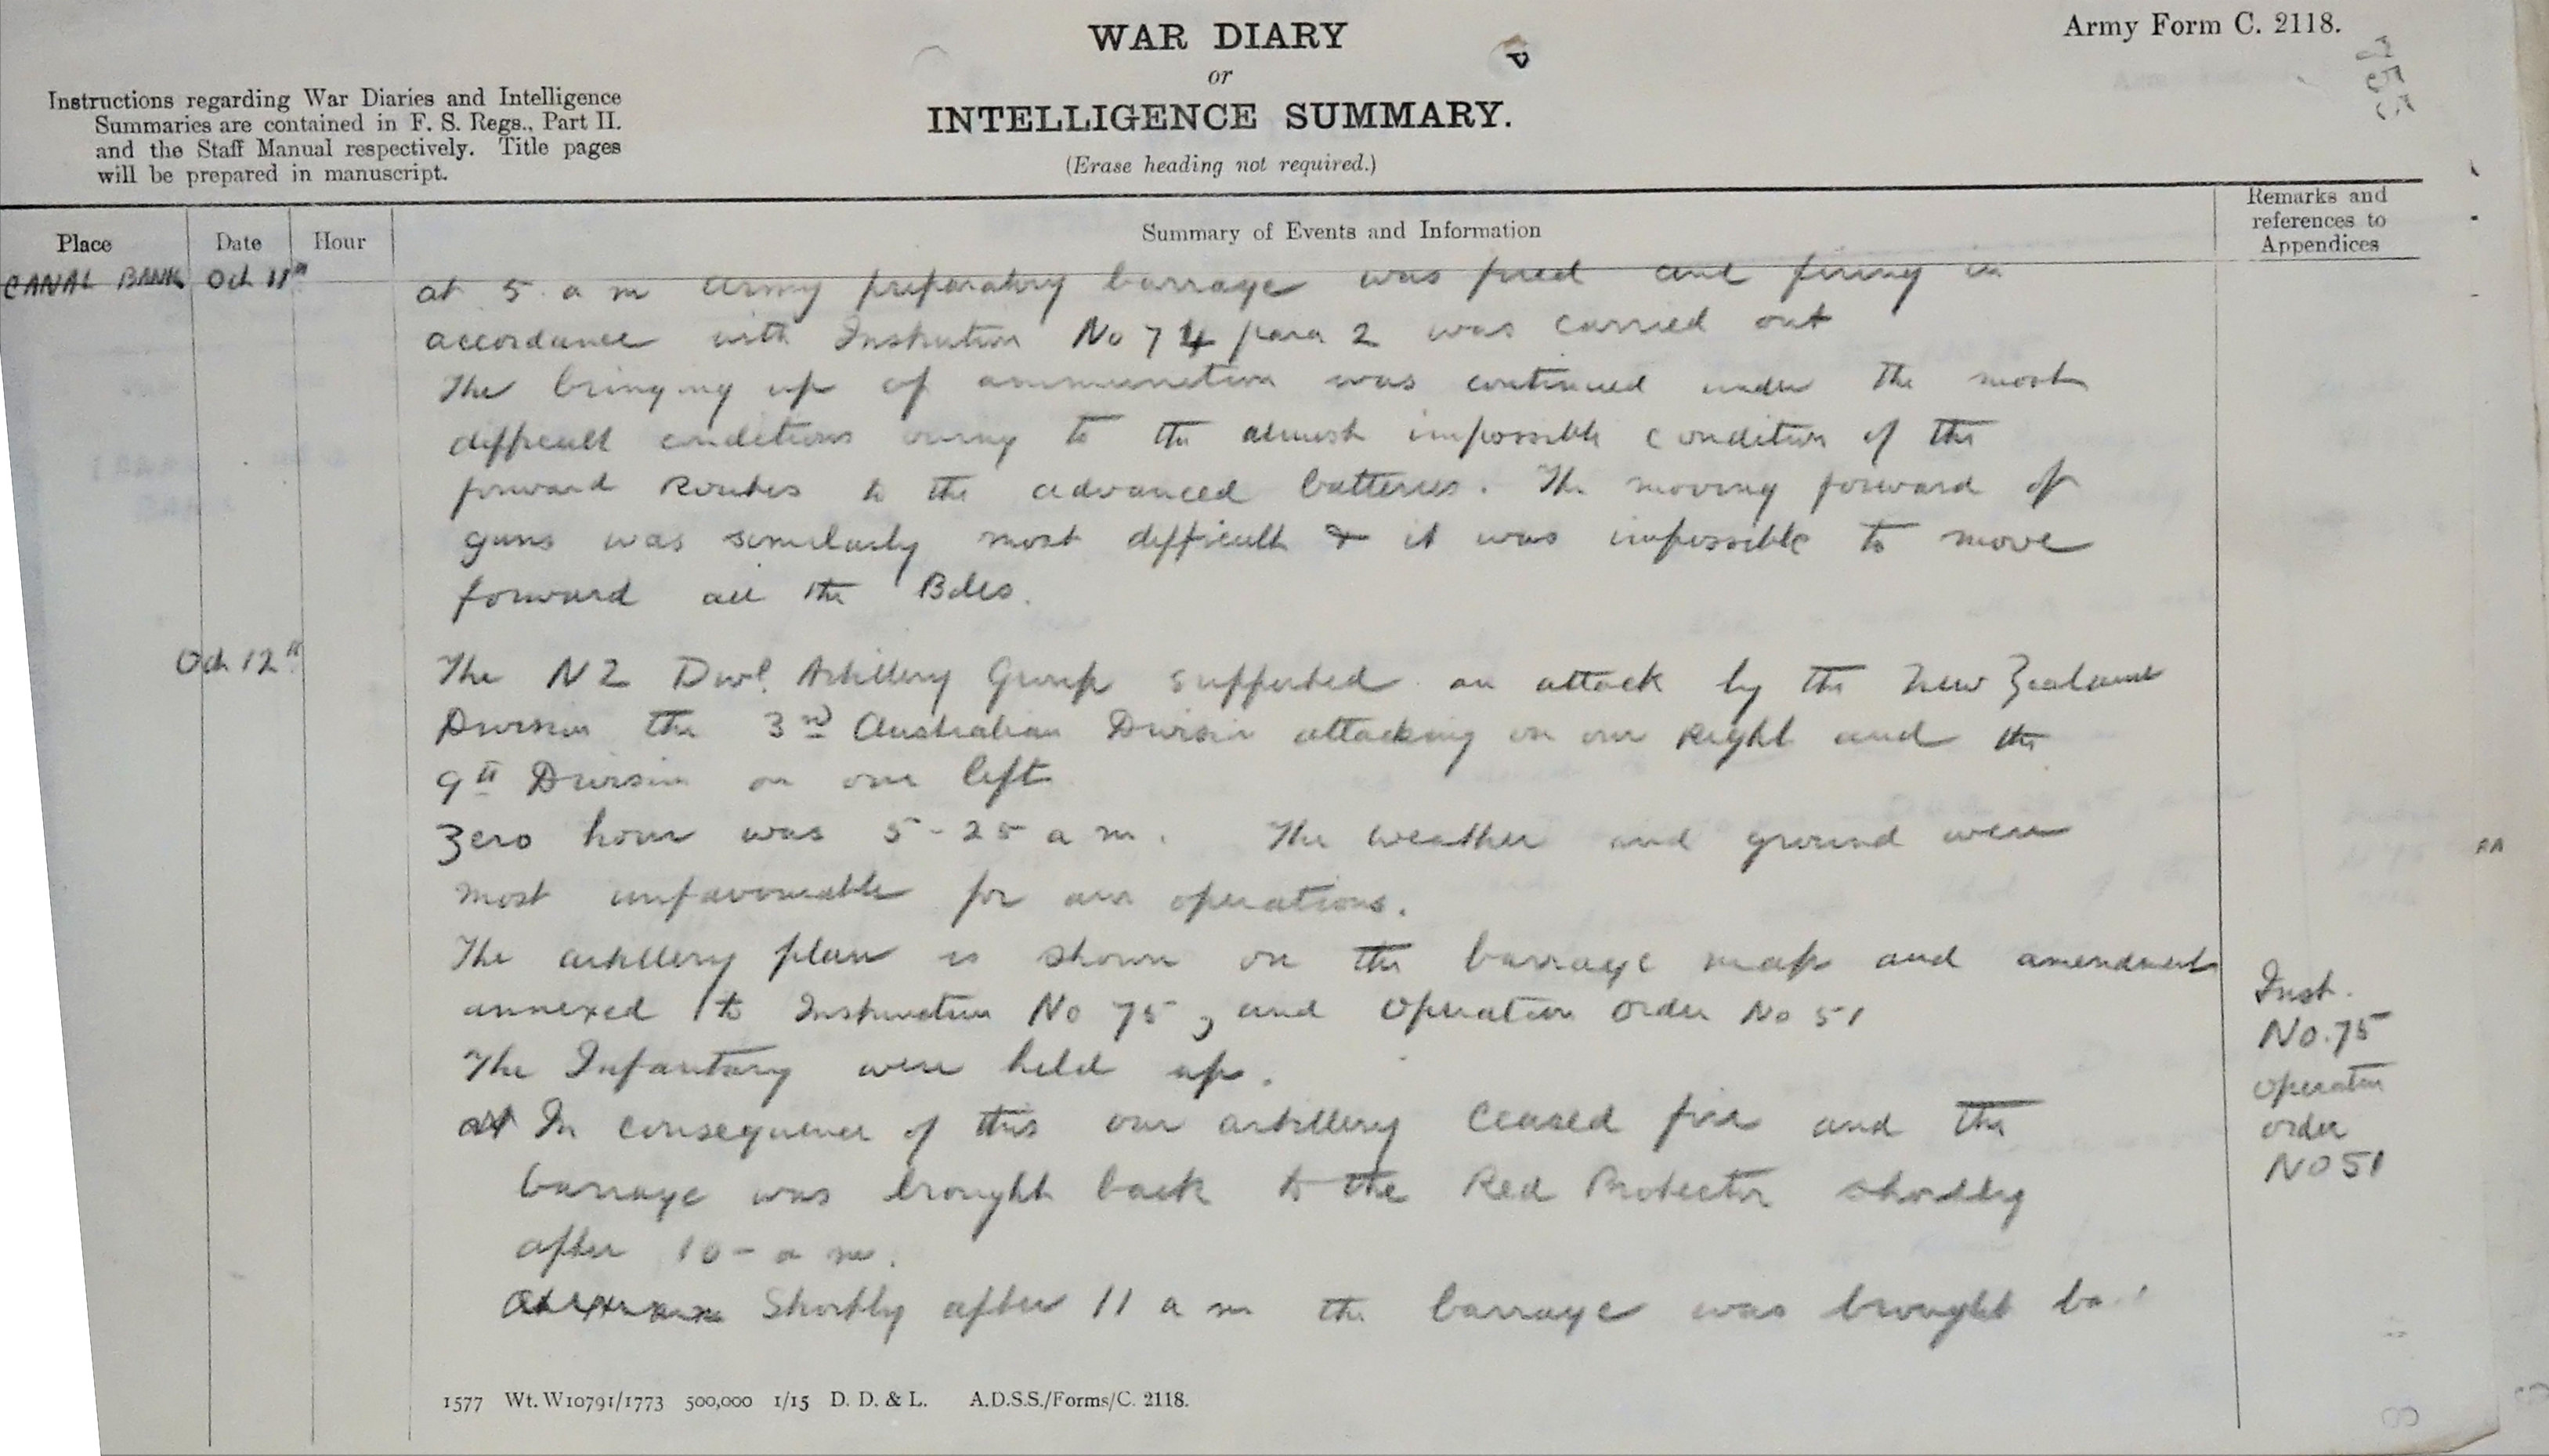 Army Form C. 2118.
WAR DIARY
or
INTELLIGENCE SUMMARY.
(Erase heading not required.)
Instructions regarding War Diaries and Intelligence
Summaries are contained in F. S. Regs., Part II.
and the Staff Manual respectively. Title pages
will be prepared in manuscript.
Place Date Hour Summary of Events and Information
Remarks and
references to
Appendices
CANAL BANK Oct 11th at 5 a m Army preparatory barrage was fired and firing in
accordance with Instruction No 74 para 2 was carried out
The bringing up of ammunition was continued under the most
difficult conditions owing to the almost impossible condition of the
forward Routes to the advanced batteries. The moving forward of
guns was similarly most difficult & it was impossible to move
forward all the Bdes.
Oct 12th The NZ Divl. Artillery Group supported an attack by the New Zealand
Division the 3rd Australian Division attacking on our Right and the
9th Division on our left
Zero hour was 5-25 a m. The weather and ground were
most unfavourable for our operations.
The artillery plan is shown on the barrage map and amendment
annexed to Instruction No 75, and Operation Order No 51
The Infantary were held up.
In consequence of this our artillery ceased fire and the
barrage was brought back to the Red Protector shortly
after 10- a m.
Shortly after 11 a m the barrage was brought
Inst.
No. 75
Operation
order
No 51
1577 Wt. W10791/1773 500,000 1/15 D. D. & L. A.D.S.S./Forms/C. 2118.